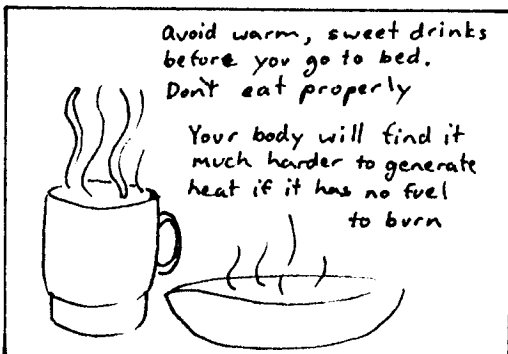 avoid warm, sweet drinks
before you go to bed.
Don't eat properly
Your body will find it
much harder to generate
heat if it has no fuel
to burn